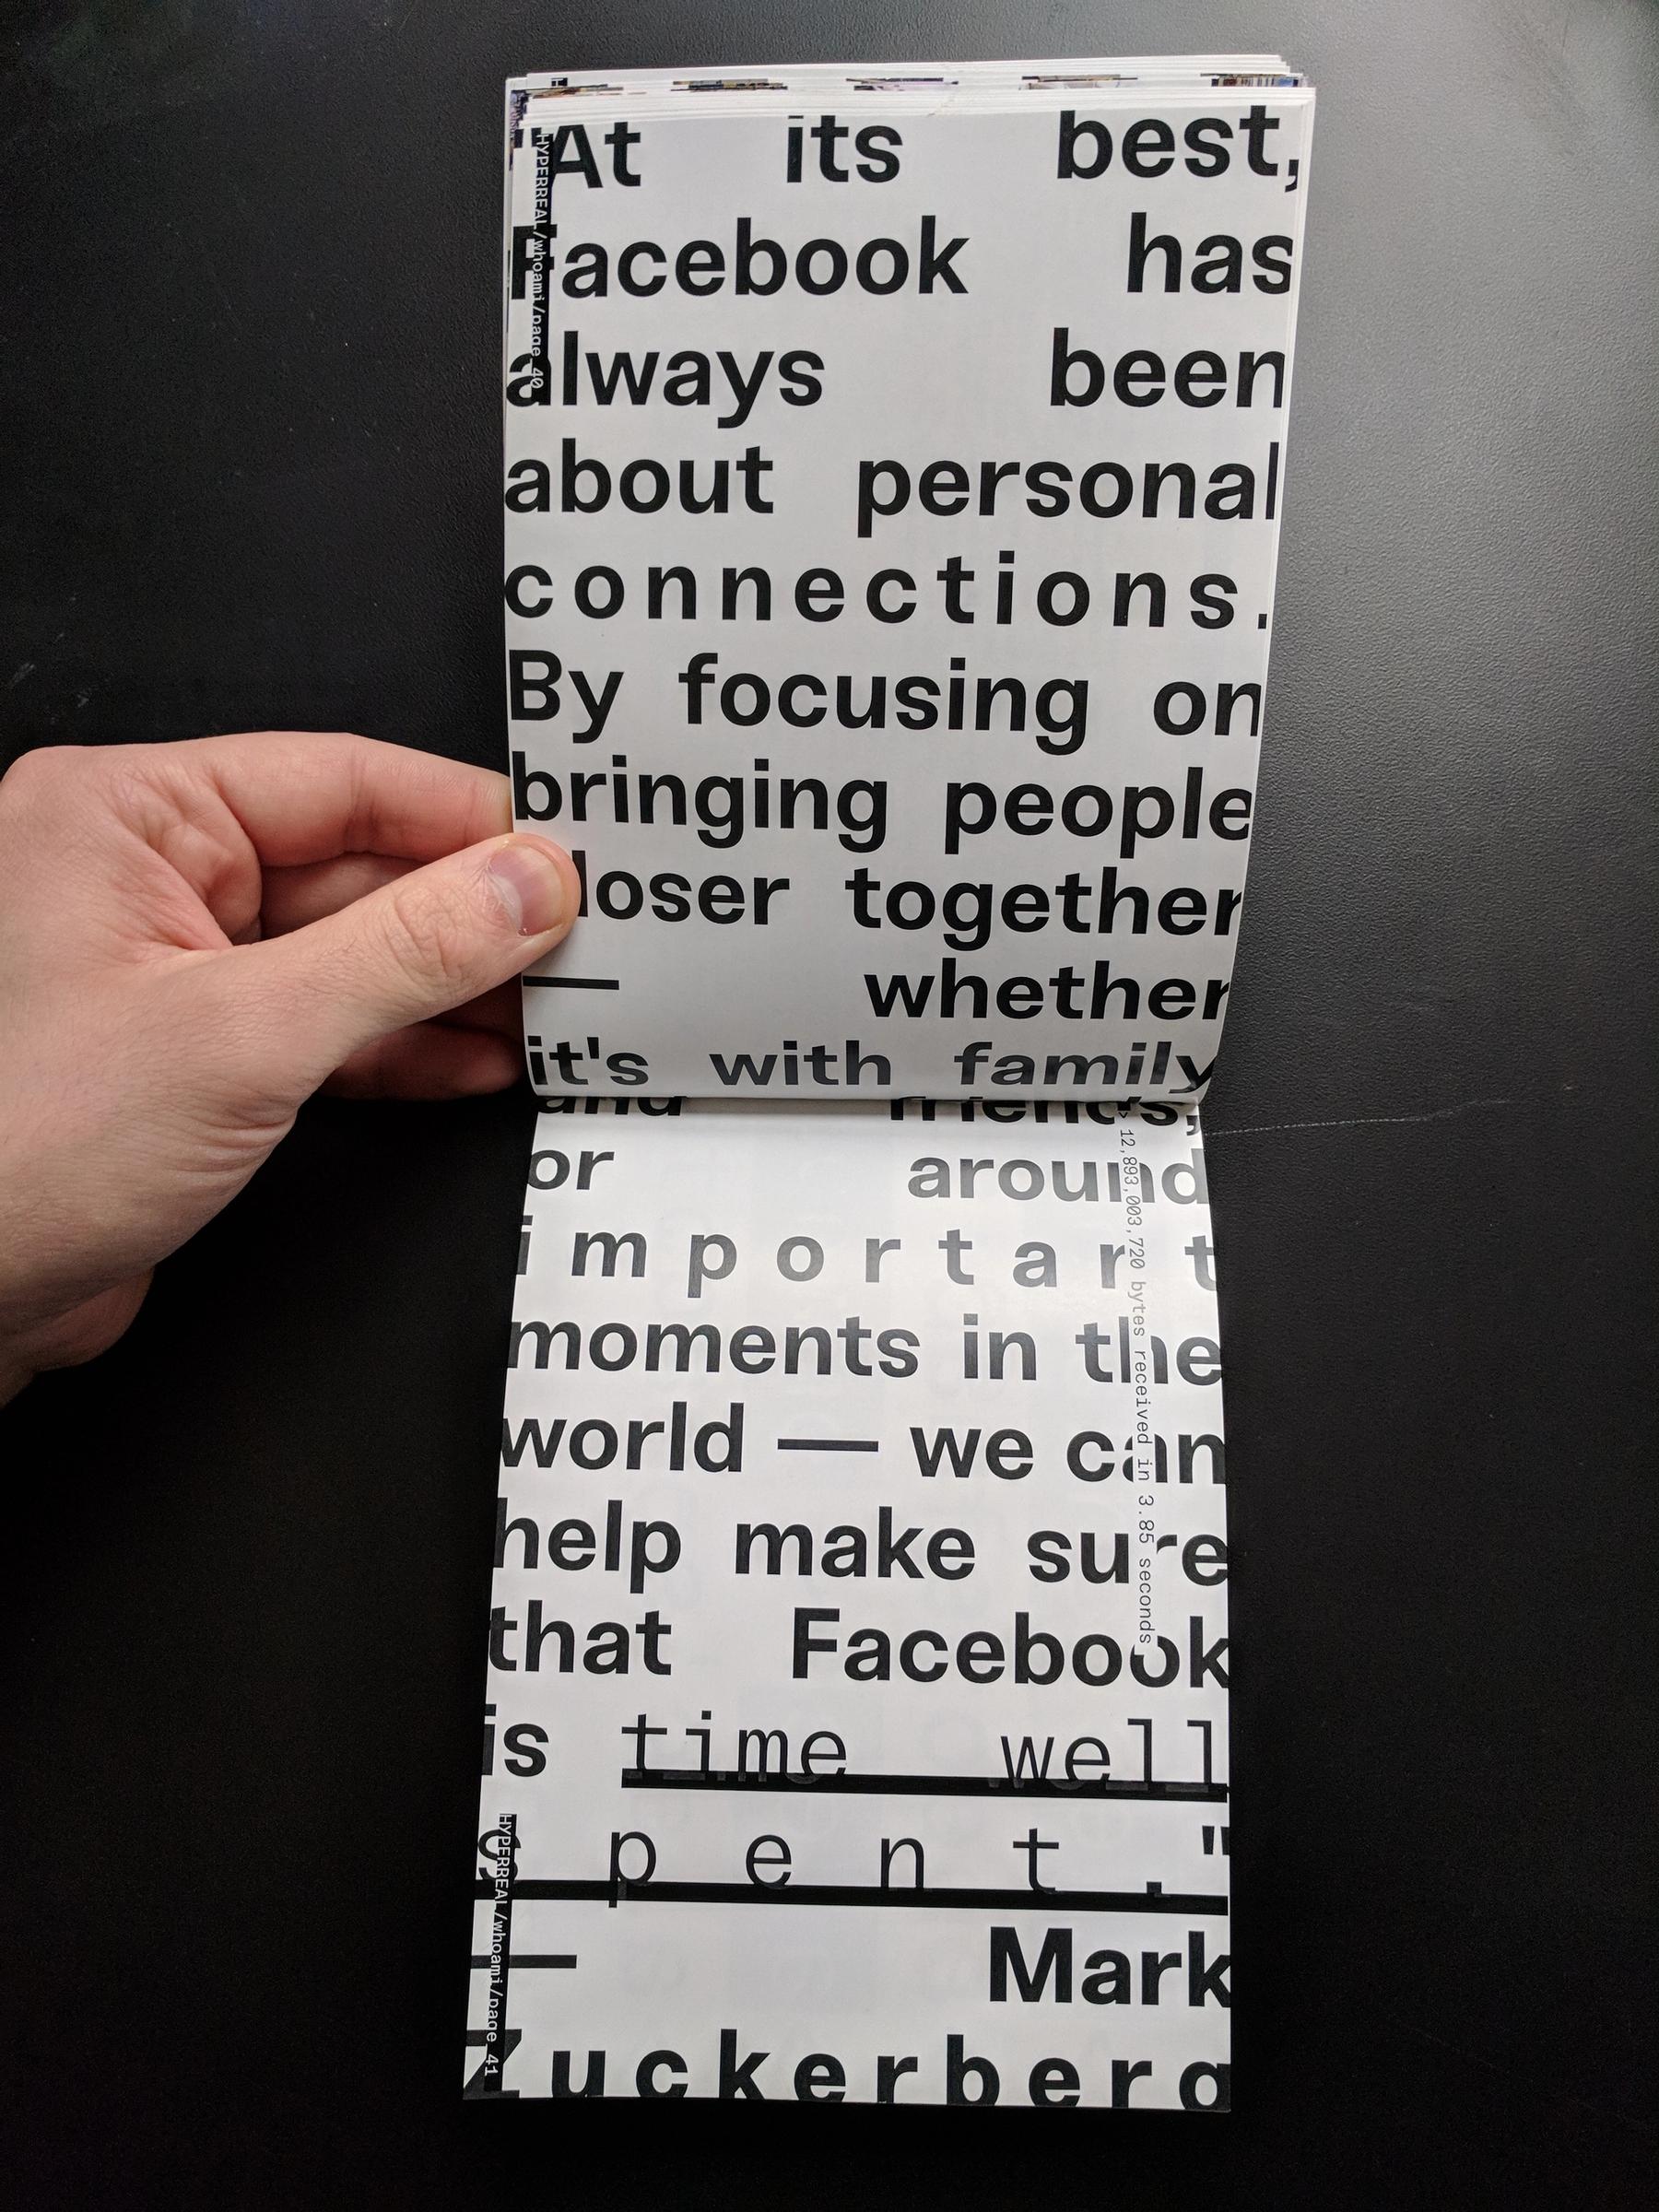 "At its best,
Facebook has
always been
about personal
connections.
By focusing on
bringing people
closer together
— whether
it's with family
and friends,
or around
important
moments in the
world — we can
help make sure
that Facebook
is time well
spent."
— Mark
Zuckerberg
HYPERREAL/whoami/page_40
> 12,893,003,720 bytes received in 3.85 seconds
HYPERREAL/whoami/page_41